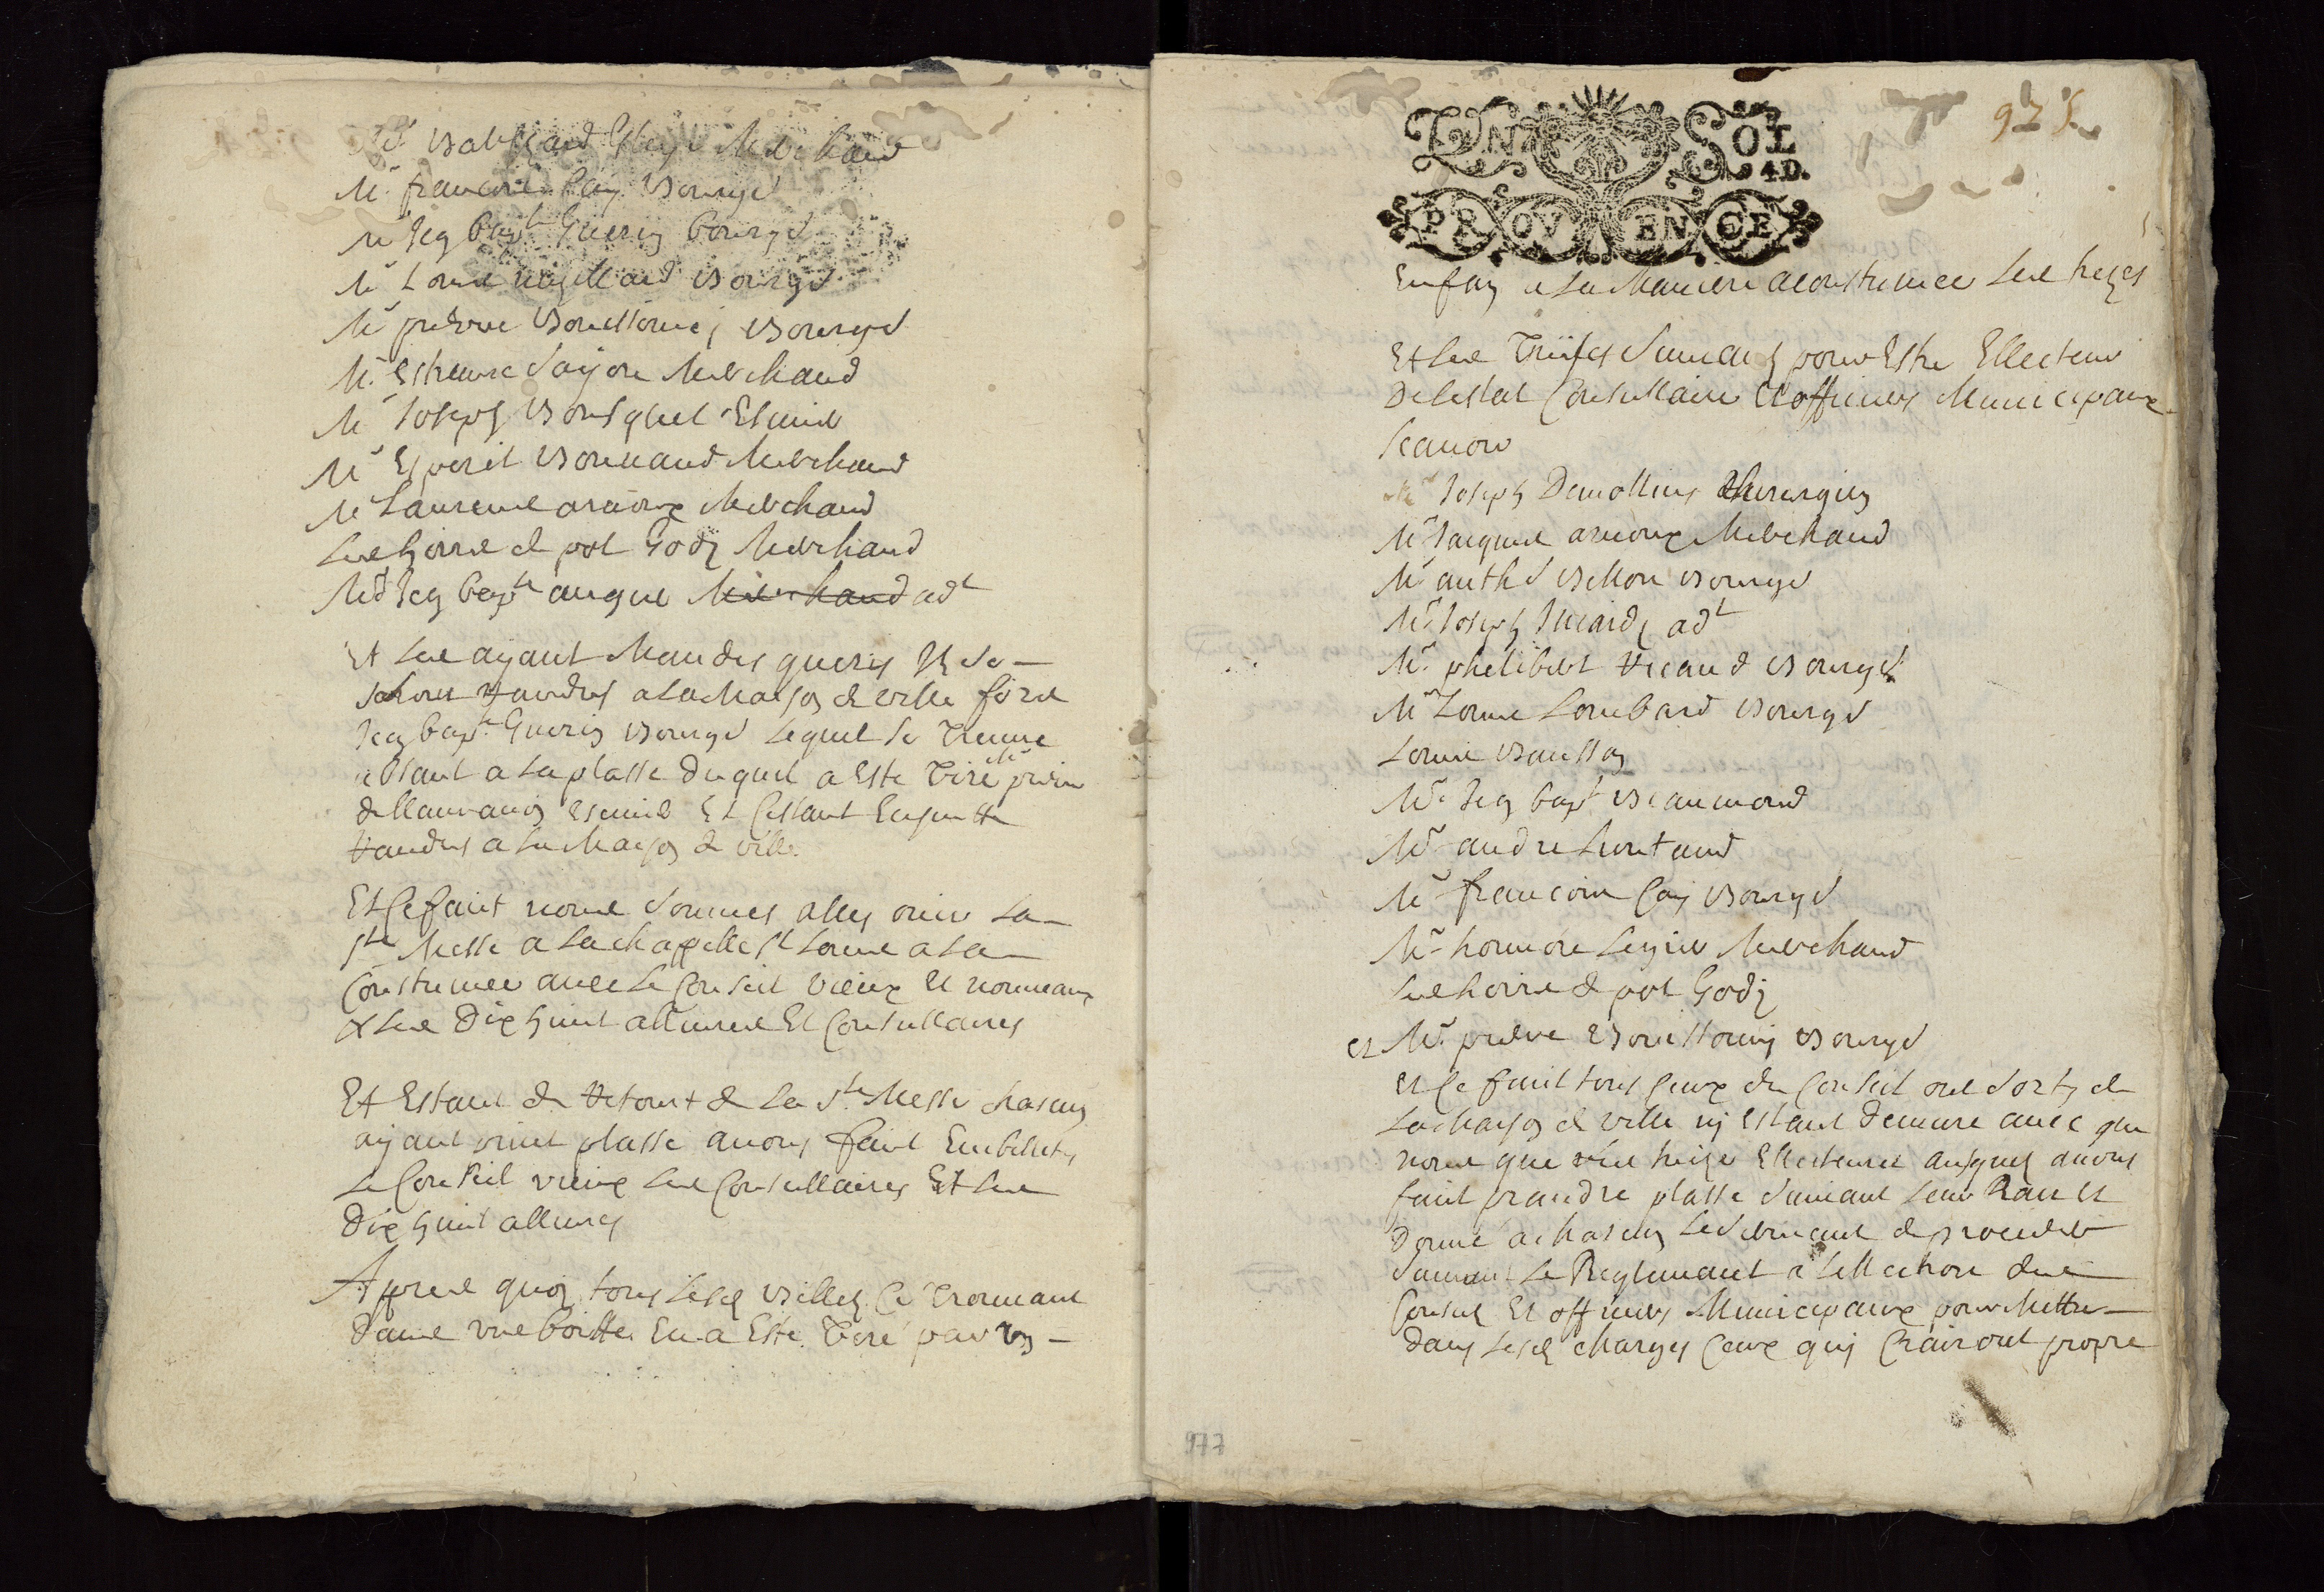 Mr Balthard Merchand
Mr francois Cay Bourgs
Mr Jeq bapt Guerin bourgs
Mr Louis Bourgs
Mr pierre Bourgs
Mr Estienne Merchand
Mr Joseph Bousquet Esmin
Mr Esperit Bonnaud Merchand
Mr Laurens arnoux Merchand
Les hoirs de pol Gody Merchand
Mr Jeq bapt augne Merchand adt
Et les ayant Mandes queris Ils se
randus a la Maison de ville fors
Jeq bapt Guerin Bourgs lequel se Treuve
absant a la plasse duquel a Este Tiré
Et
randus a la Maison de ville
Et Ce fait nous sommes alles ouir la
ste Messe a la chappelle st Louis a la
Coustumee avec le Conseil vieux et nouveaux
& les Dix huit allumes Et Consullaires
Et Estant de Retourt de la ste Messe chascun
ayant prins plasse avons fait Embilletes
Le Conseil vieux les Consullaires Et les
Dix huit allumes
Apres quoy tous lesd Billes Ce Trouvant
dans une boitte En a Este Tiré par un
975
UN SOL
4D.
PROVENCE
Enfan a la Maniere acoustumee les treges
Et les Trises suivans pour Estre Ellecteurs
De lestat Consullaire Et officiers Municipaux
scavoir
Mr Joseph Demollins Chirurgien
Mr Jacques arnoux Merchand
Mr anthe Billon Bourgs
Mr Joseph Juardy adt
Mr phelibert Ricaud Bourgs
Mr Louis Lombard Bourgs
Louis Bausson
Mr Jeq bapt Beaumond
Mr andre
Mr francois Cay Bourgs
Mr honnore Legier Merchand
Les hoirs de pol Gody
et Mr pierre Bourgs
et Ce fait tous Ceux du Conseil ont sorty de
La Maison de ville ny Estant Demure avec que
nous que les treize Ellecteurs ausquels avons
fait prandre plasse suivant leur Ran et
donné a chascun le serment de proceder
suivant le Reglement a lellection des
Consuls Et officiers Municipaux pour Mettre
dans lesd charges Ceux quy Crairont propre
977